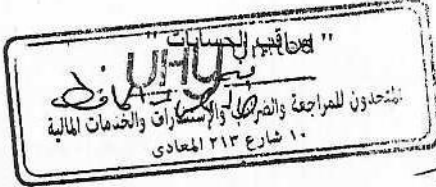 " مراقب الحسابات "
UHY
المتحدون للمراجعة والضرائب والإستشارات والخدمات المالية
١٠ شارع ٢١٣ المعادى